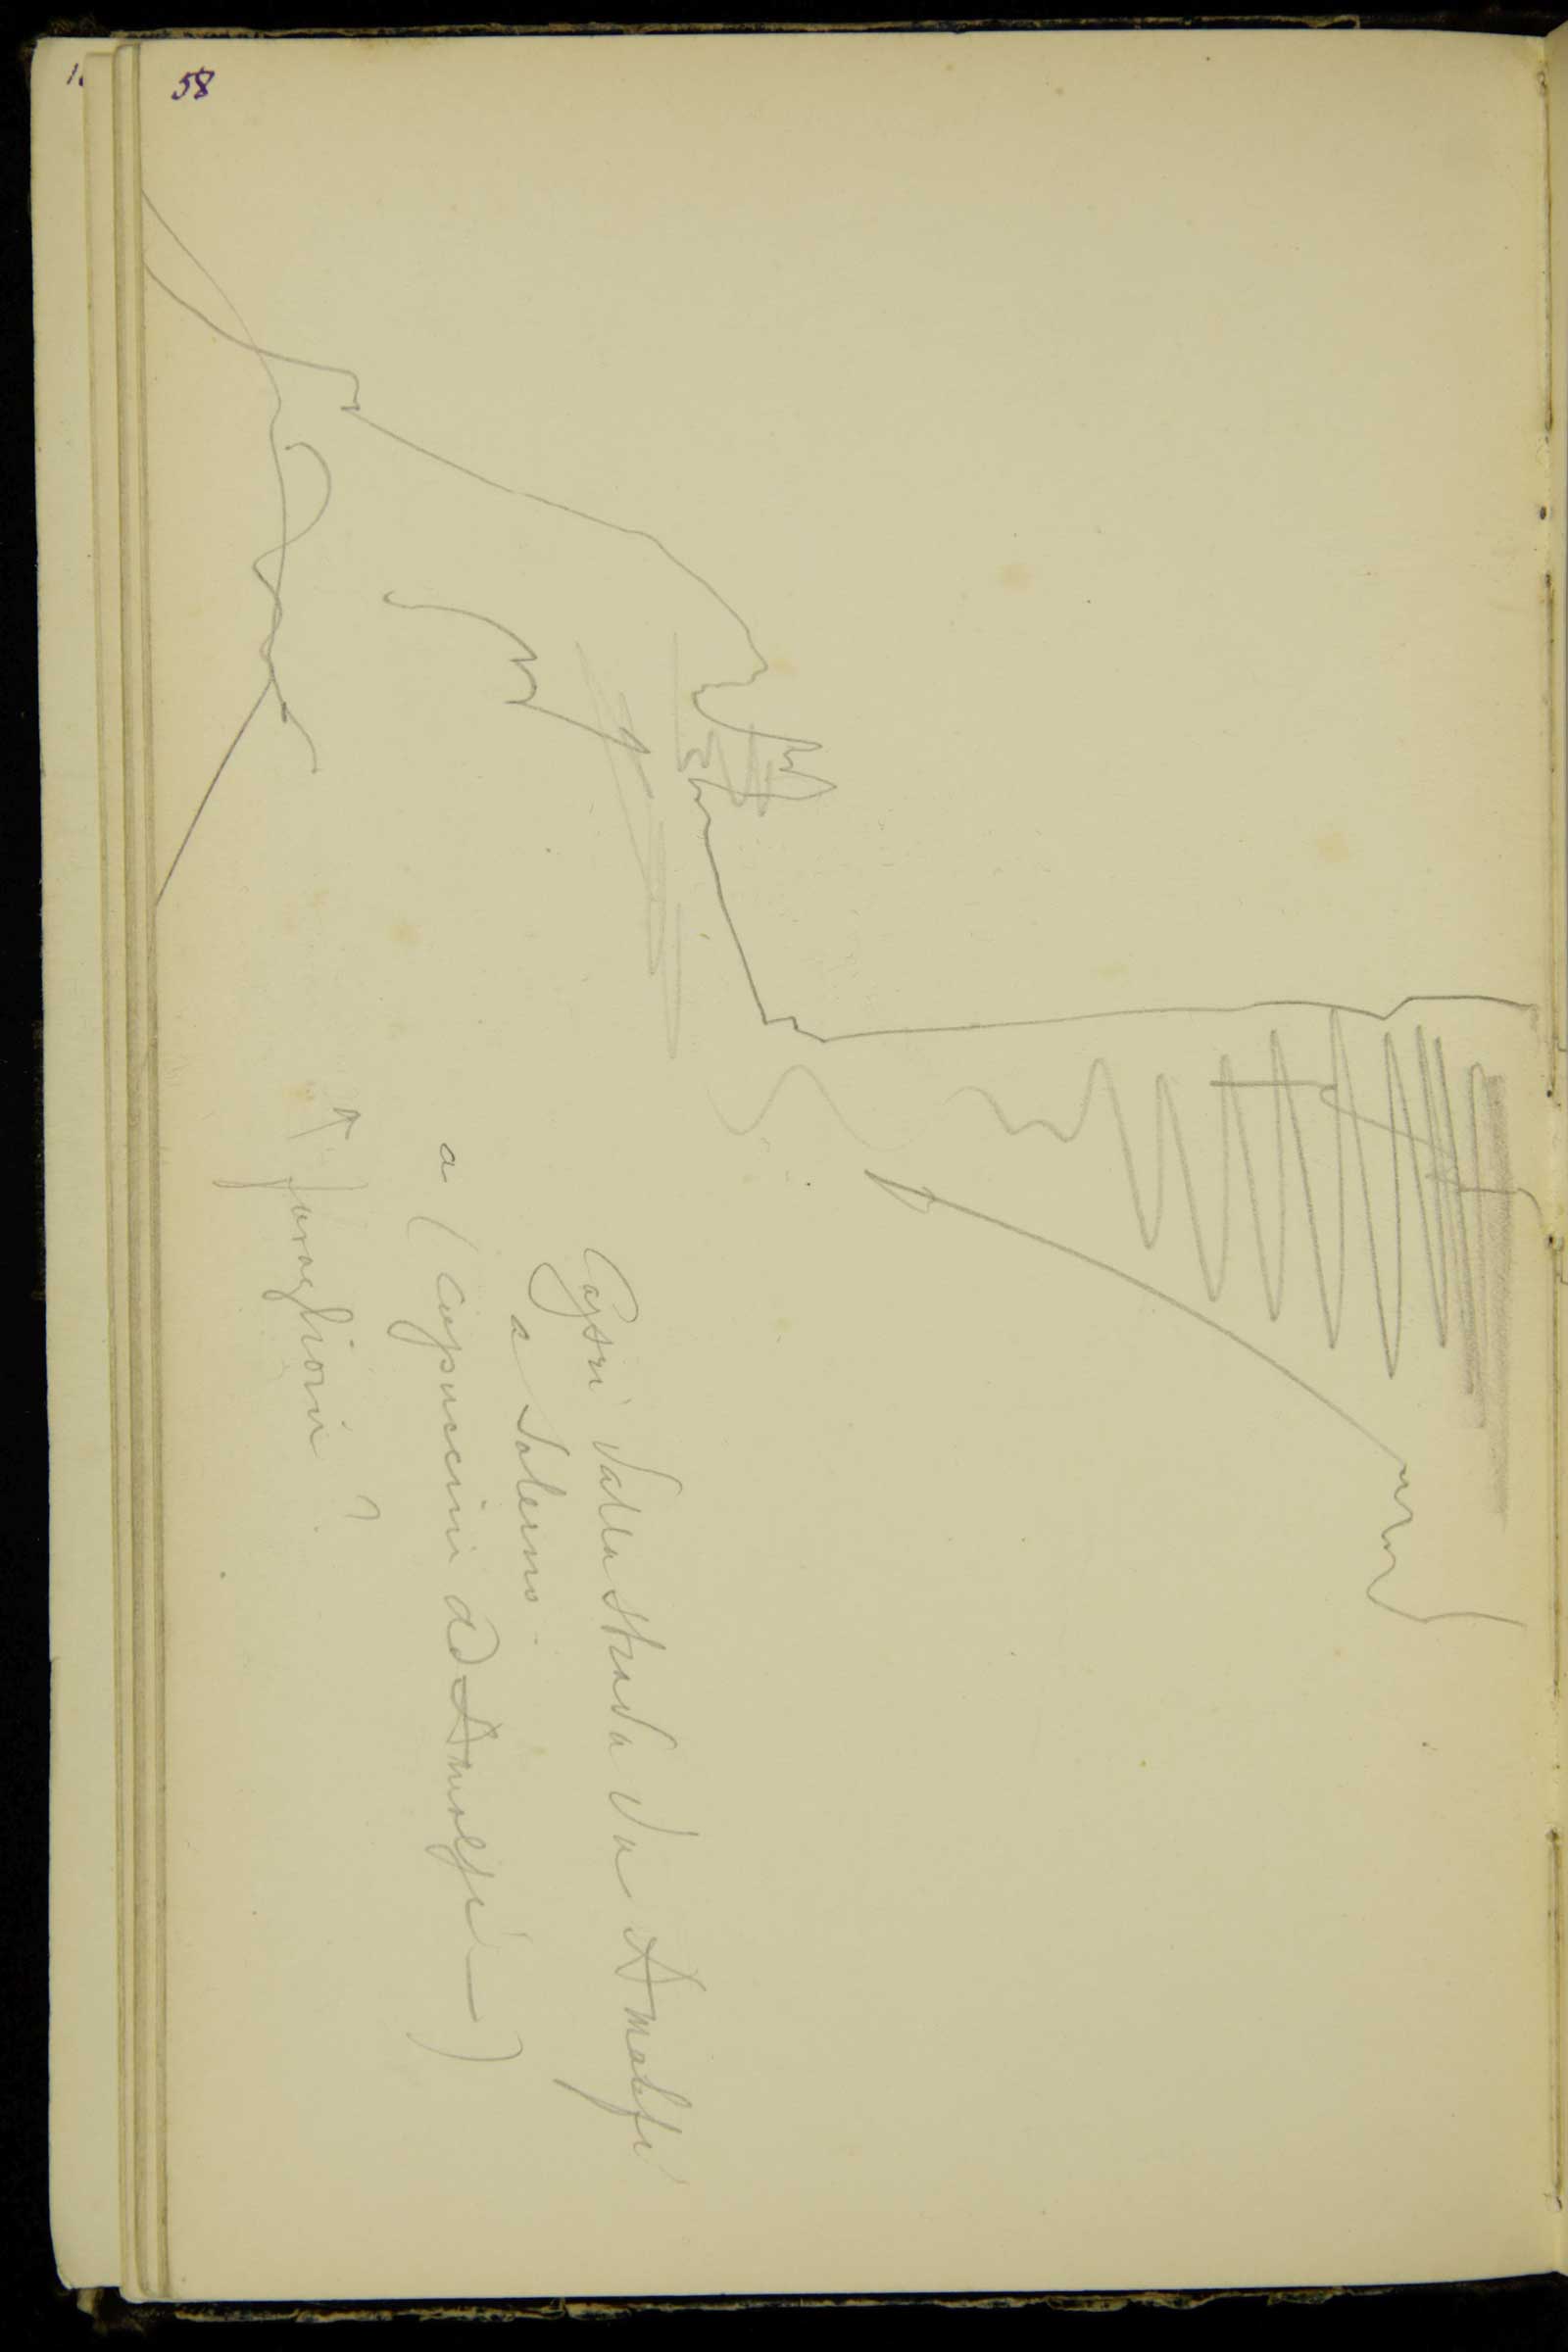 58
Capri dalla strada da Amalfi
a Salerno.
a (Capuccini ad Amalfi—)
faraglioni ?